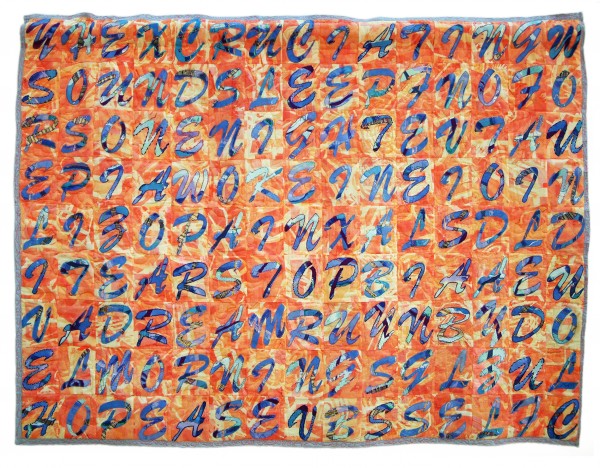 YHEXCRUCIATINGW
SOUNDSLEEPFNOFO
ESONENIGHTEVTAU
EPIAWOKEINEIOIN
LIZOPAINXALSDLD
ITEARSTOPBIAHEU
VADREAMRUNNBYDO
ELMORNINGSGLZUL
HOPEASEVESSELIC